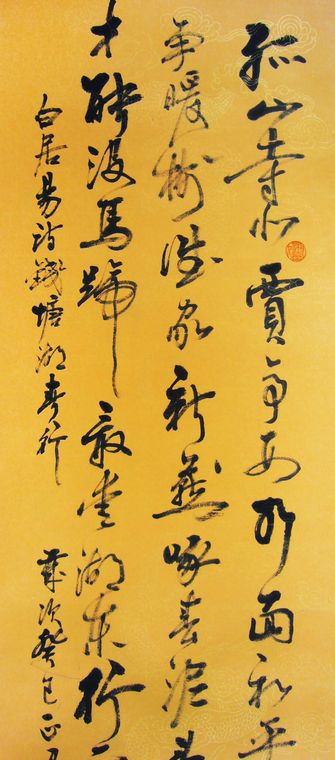 孤山寺北賈亭西水面初平
争暖樹誰家新燕啄春泥
才能沒馬蹄最愛湖東行
白居易詩錢塘湖春行 歲次癸巳正